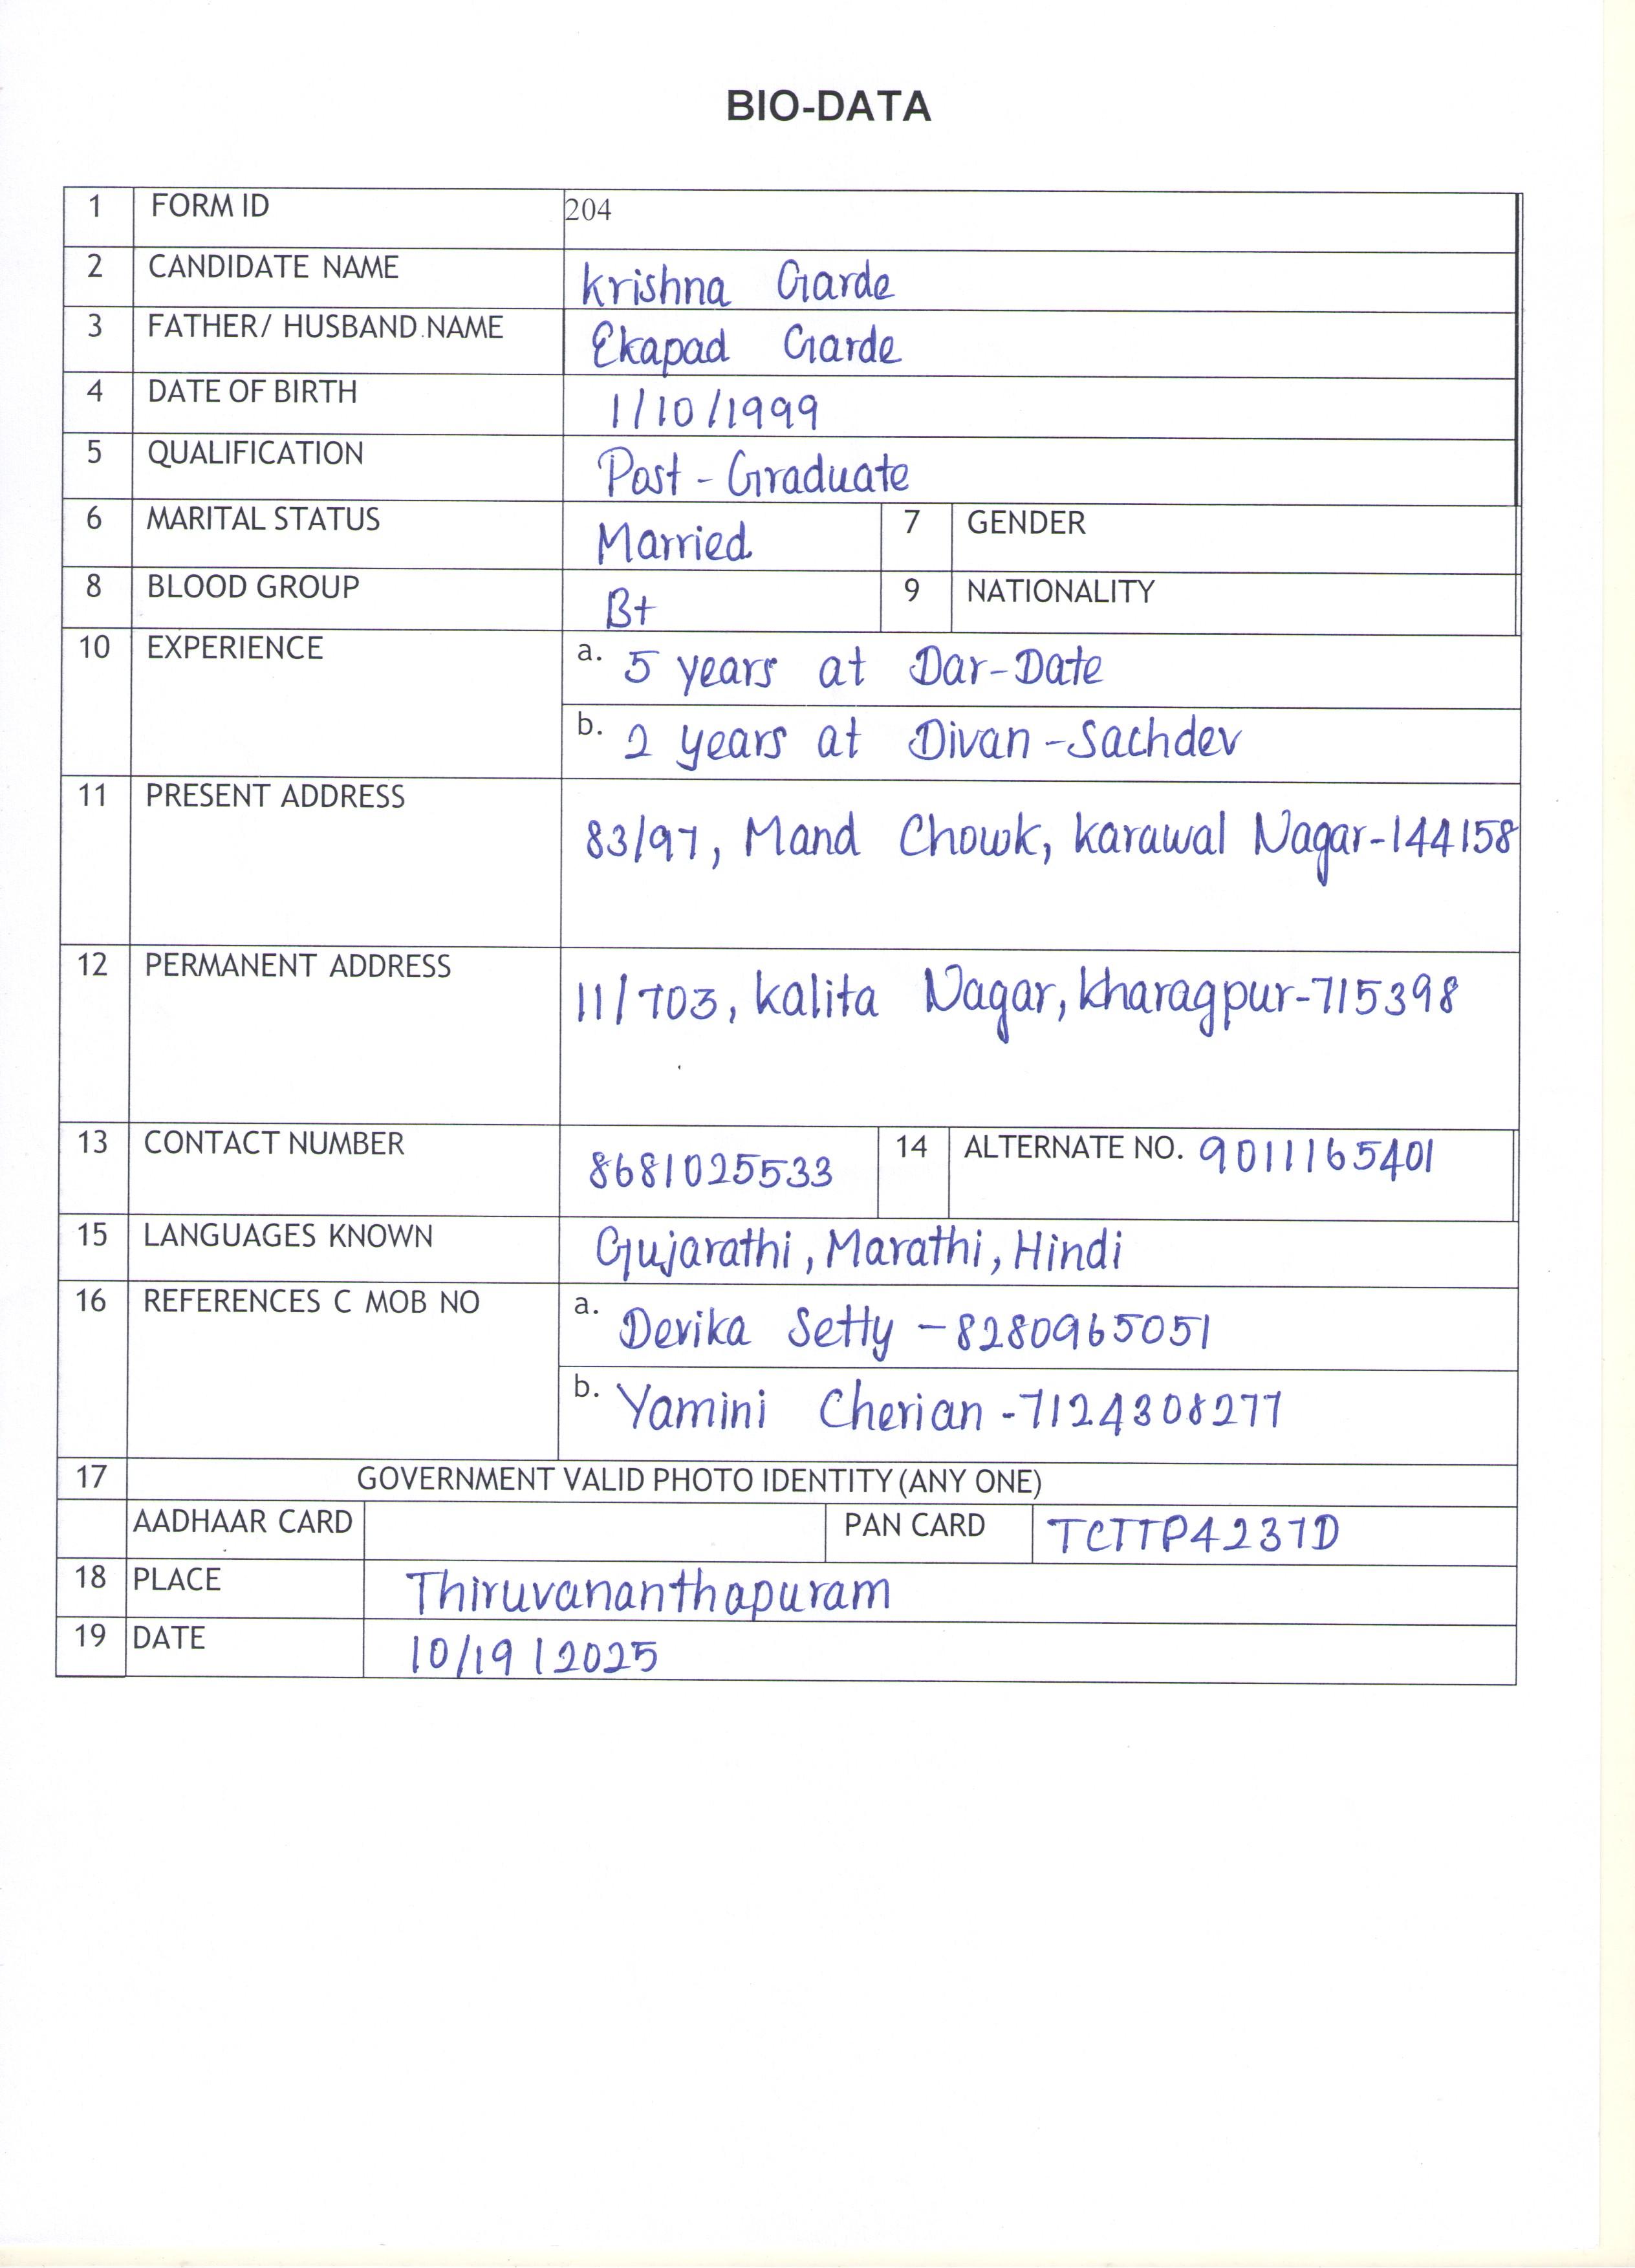 BIO-DATA
1 FORM ID 204
2 CANDIDATE NAME Krishna Garde
3 FATHER/ HUSBAND NAME Ekapad Garde
4 DATE OF BIRTH 1/10/1999
5 QUALIFICATION Post-Graduate
6 MARITAL STATUS Married 7 GENDER
8 BLOOD GROUP B+ 9 NATIONALITY
10 EXPERIENCE a. 5 years at Dar-Date
b. 2 years at Divan-Sachdev
11 PRESENT ADDRESS 83/97, Mand Chowk, Karawal Nagar-144158
12 PERMANENT ADDRESS 11/703, Kalita Nagar, Kharagpur-715398
13 CONTACT NUMBER 8681025533 14 ALTERNATE NO. 9011165401
15 LANGUAGES KNOWN Gujarathi, Marathi, Hindi
16 REFERENCES C MOB NO a. Devika Setty - 8280965051
b. Yamini Cherian - 7124308277
17 GOVERNMENT VALID PHOTO IDENTITY (ANY ONE)
AADHAAR CARD PAN CARD TCTTP4237D
18 PLACE Thiruvananthapuram
19 DATE 10/19/2025